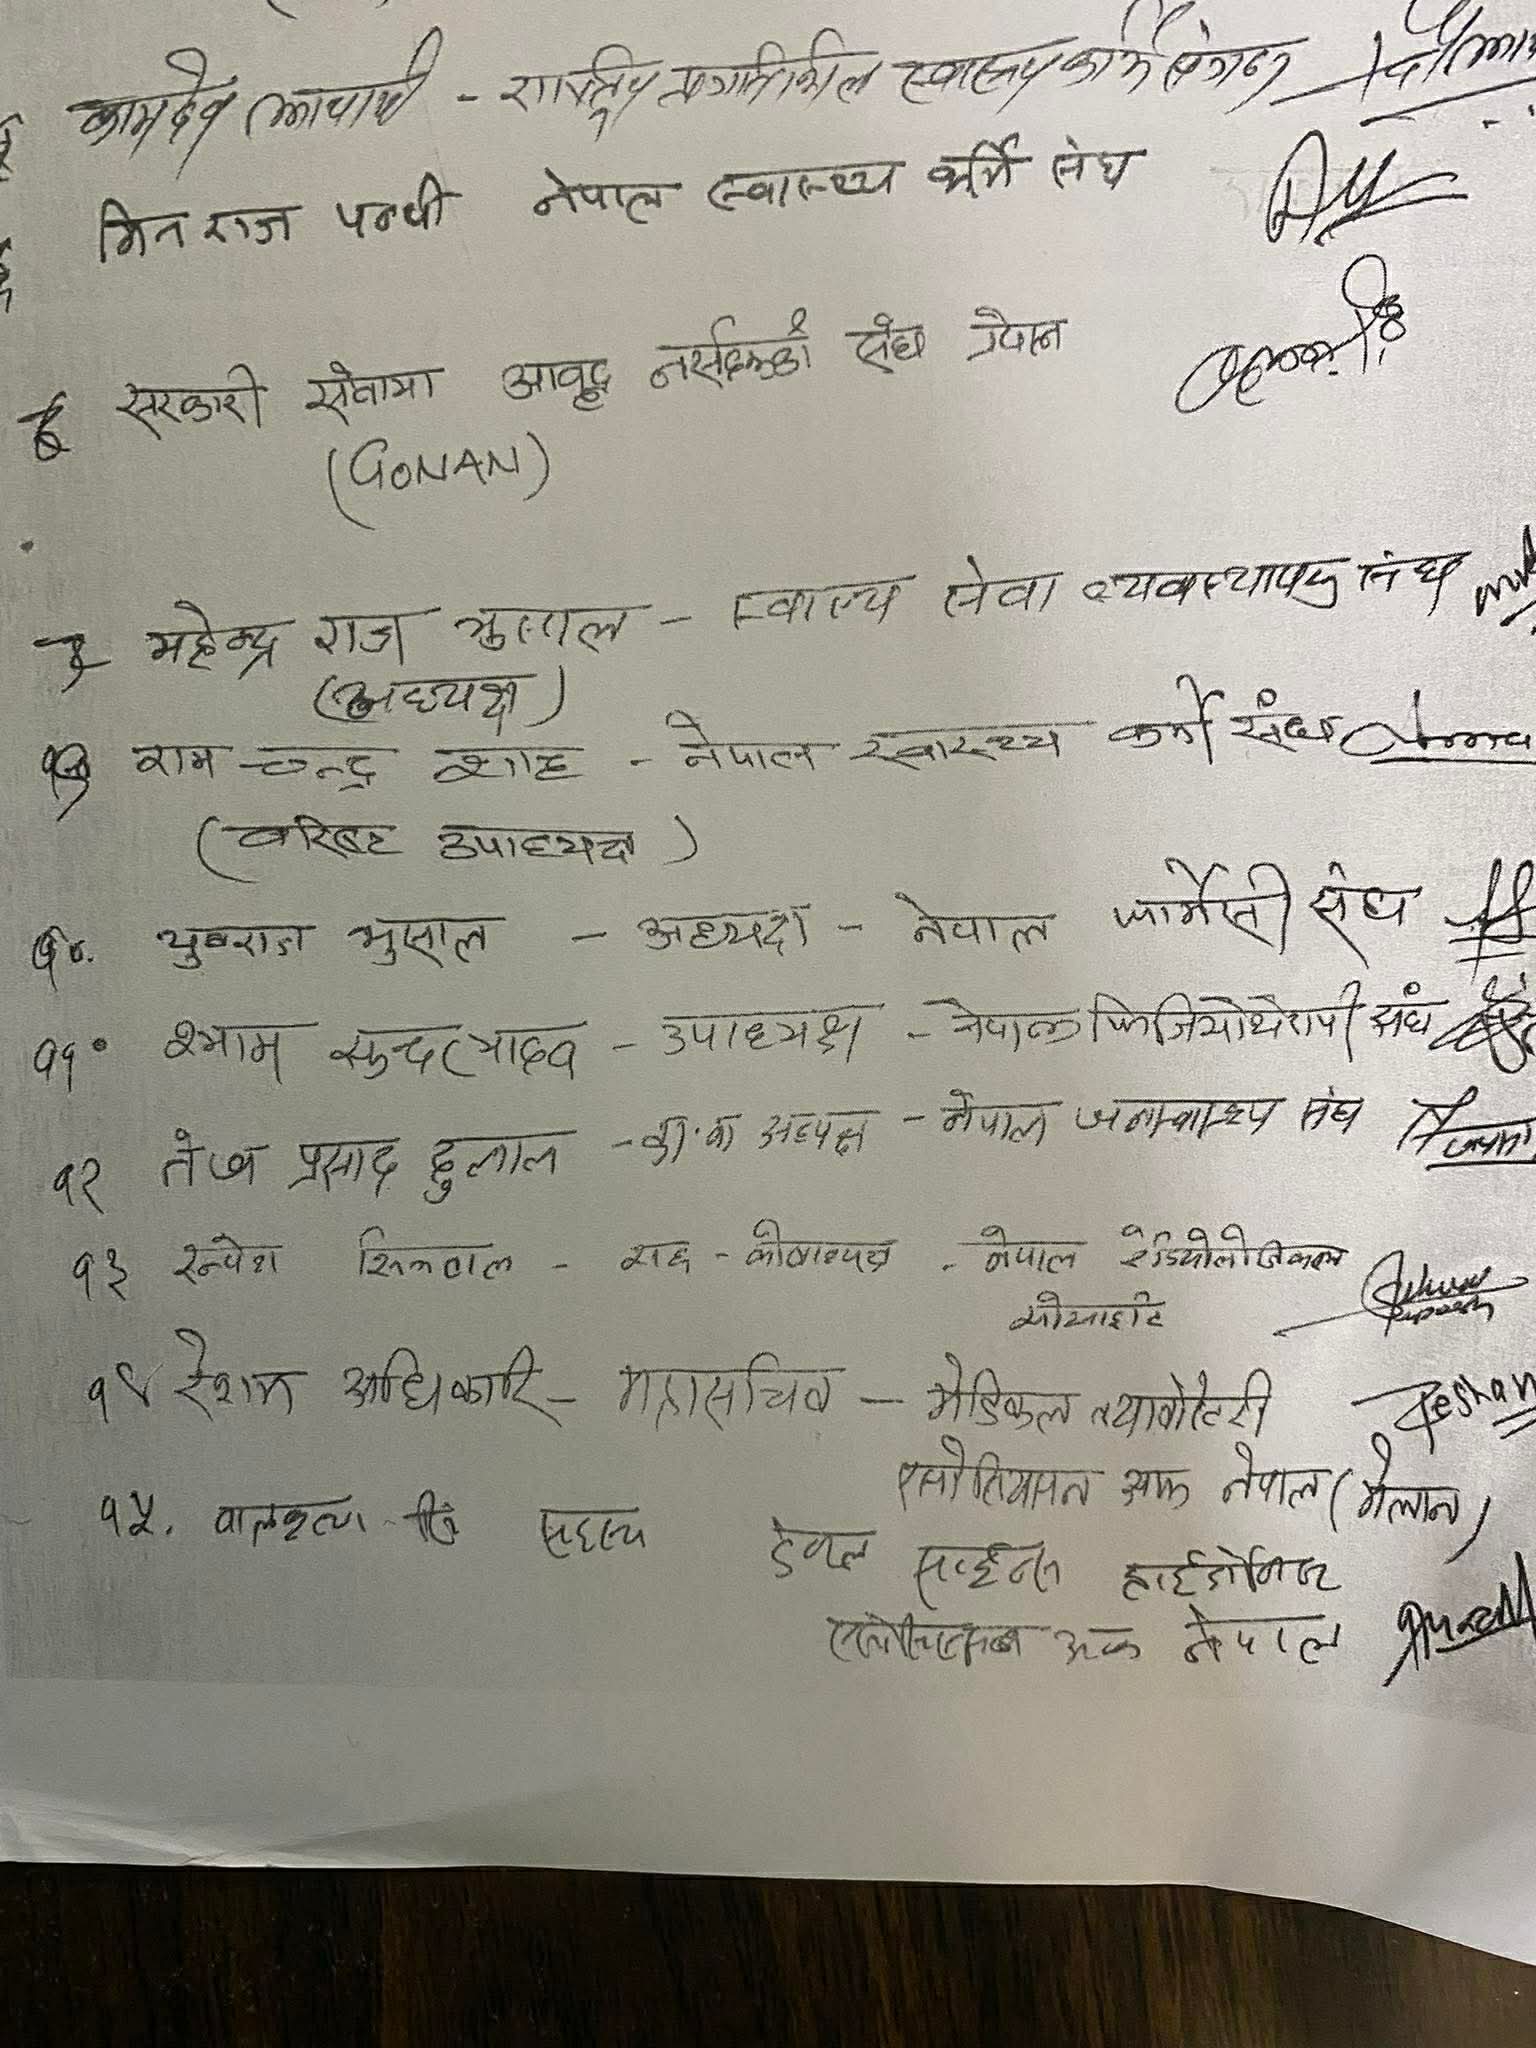 कामदेव आचार्य - राष्ट्रिय प्रगतिशील स्वास्थ्यकर्मि संगठन
मित राज पन्थी नेपाल स्वास्थ्य कर्मि संघ
सरकारी सेवामा आवद्ध संघ नेपाल
(GONAN)
महेन्द्र राज भुसाल - स्वास्थ्य सेवा व्यवस्थापक संघ
(अध्यक्ष)
राम चन्द्र शाह - नेपाल स्वास्थ्य कर्मी संघ
(वरिष्ठ उपाध्यक्ष)
१०. युवराज भुसाल - अध्यक्ष - नेपाल फार्मेसी संघ
११ श्याम सुन्दर यादव - उपाध्यक्ष - नेपाल फिजियोथेरापी संघ
१२ तेज प्रसाद दुलाल - का.वा अध्यक्ष - नेपाल जनस्वास्थ्य संघ
१३ सह - कोषाध्यक्ष - नेपाल रेडियोलोजिकल
सोसाइटि
१४ रेशम अधिकारि - महासचिव - मेडिकल ल्याबोरेटरी Resham
एसोसियसन अफ नेपाल (मेलान)
१५. सदस्य डेन्टल हाईजिनिष्ट
अफ नेपाल